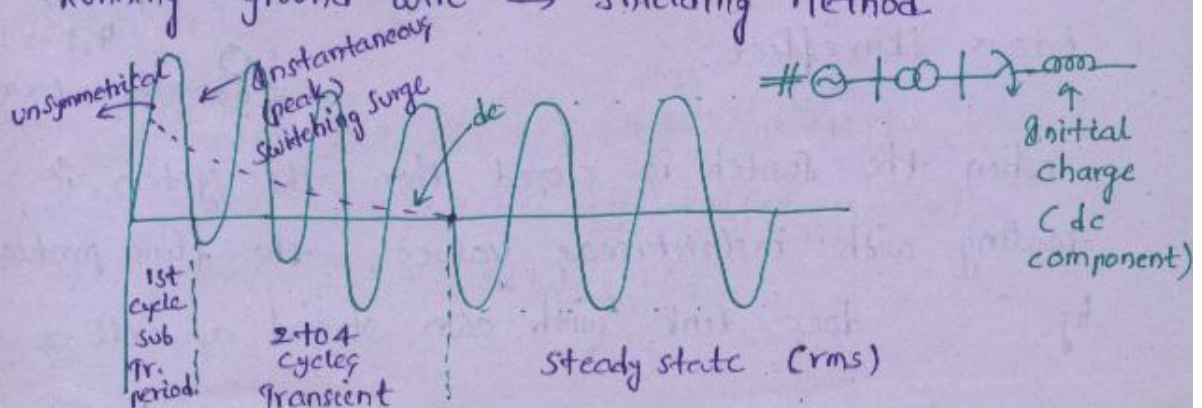 Running ground wire → shielding Method
unsymmetrical
instantaneous
(peak)
switching surge
dc
Initial
charge
(dc
component)
1st
cycle
sub
Tr.
period.
2 to 4
cycles
Transient
Steady state (rms)